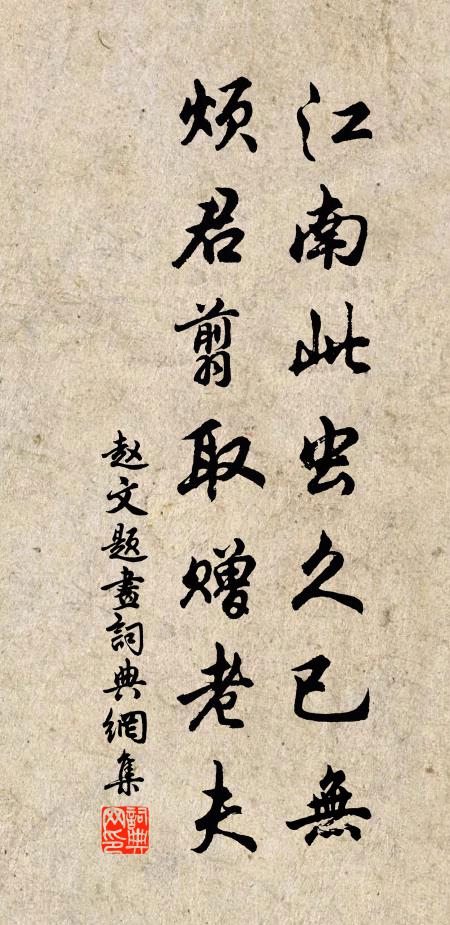 江南此虫久已無
煩君翦取贈老夫
赵文題畫詞典網集
詞典網印